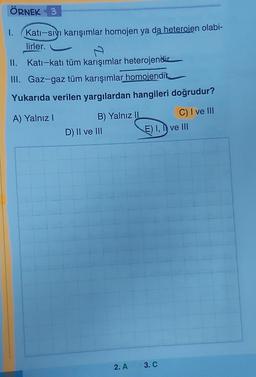 ÖRNEK 3
I. Katı-sıvı karışımlar homojen ya da heterojen olabi-
lirler.
II. Katı-katı tüm karışımlar heterojendir.
III. Gaz-gaz tüm karışımlar homojendir.
Yukarıda verilen yargılardan hangileri doğrudur?
A) Yalnız I B) Yalnız II C) I ve III
D) II ve III E) I, II ve III
2. A 3. C